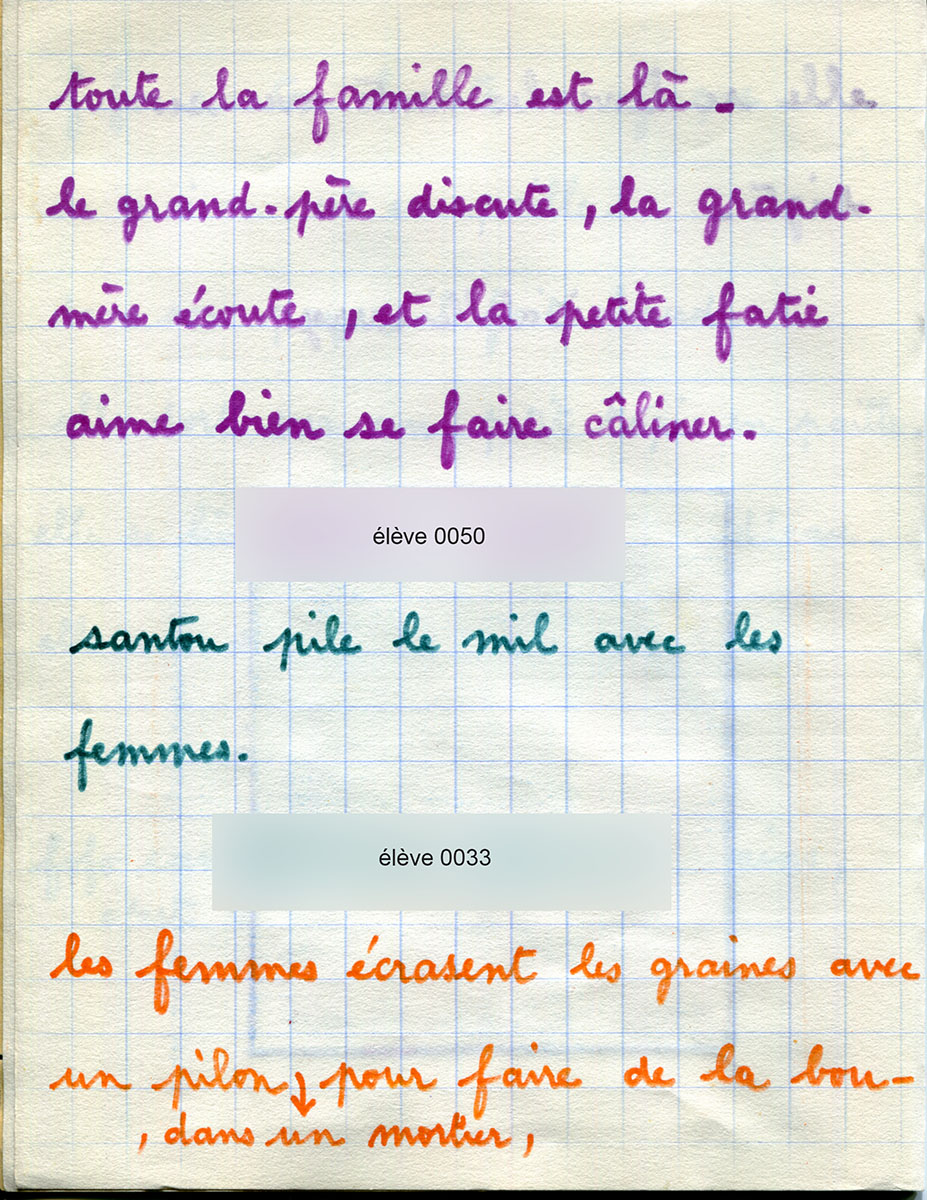 toute la famille est là.
le grand-père discute, la grand-
mère écoute, et la petite fatié
aime bien se faire câliner.
élève 0050
santou pile le mil avec les
femmes.
élève 0033
les femmes écrasent les graines avec
un pilon ↓ pour faire de la bou-
, dans un mortier,